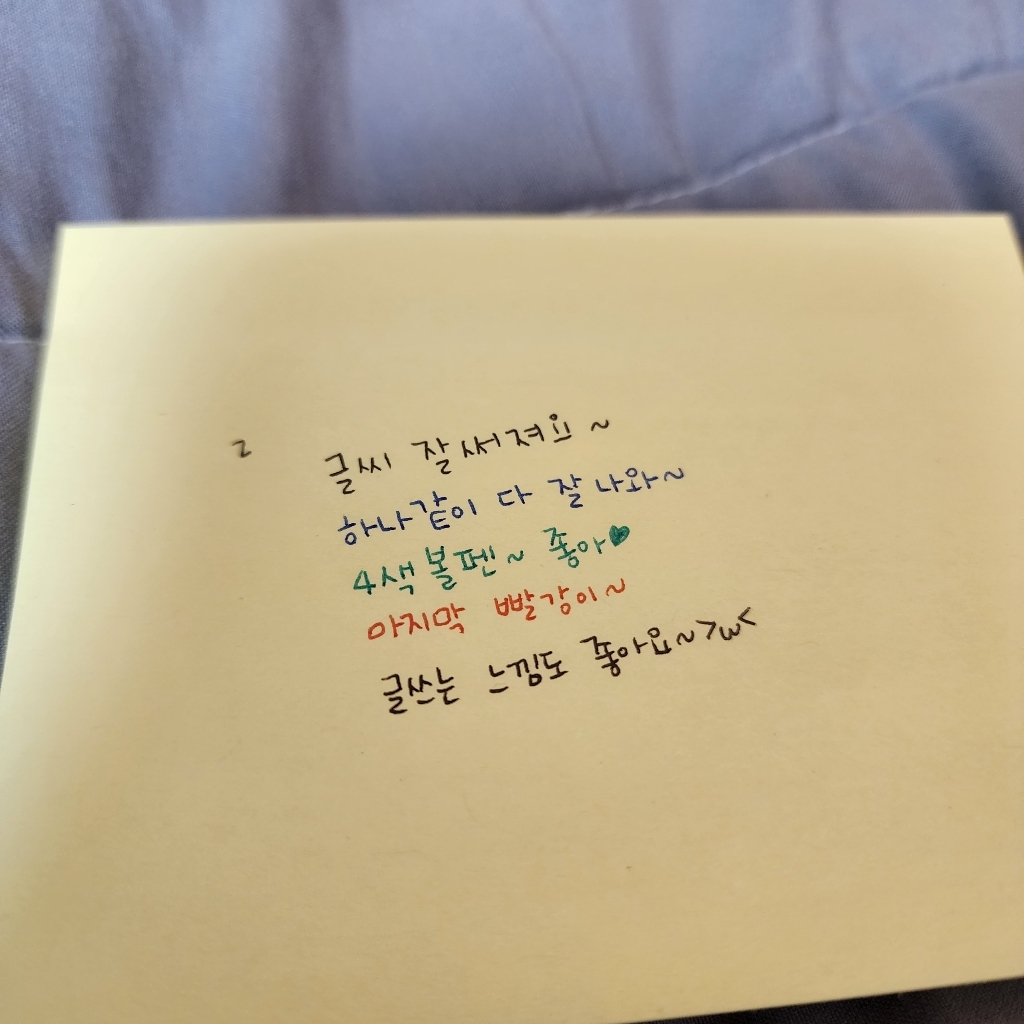 글씨 잘써져요~
하나같이 다 잘나와~
4색볼펜~ 좋아♥
마지막 빨강이~
글쓰는 느낌도 좋아요~>ω<